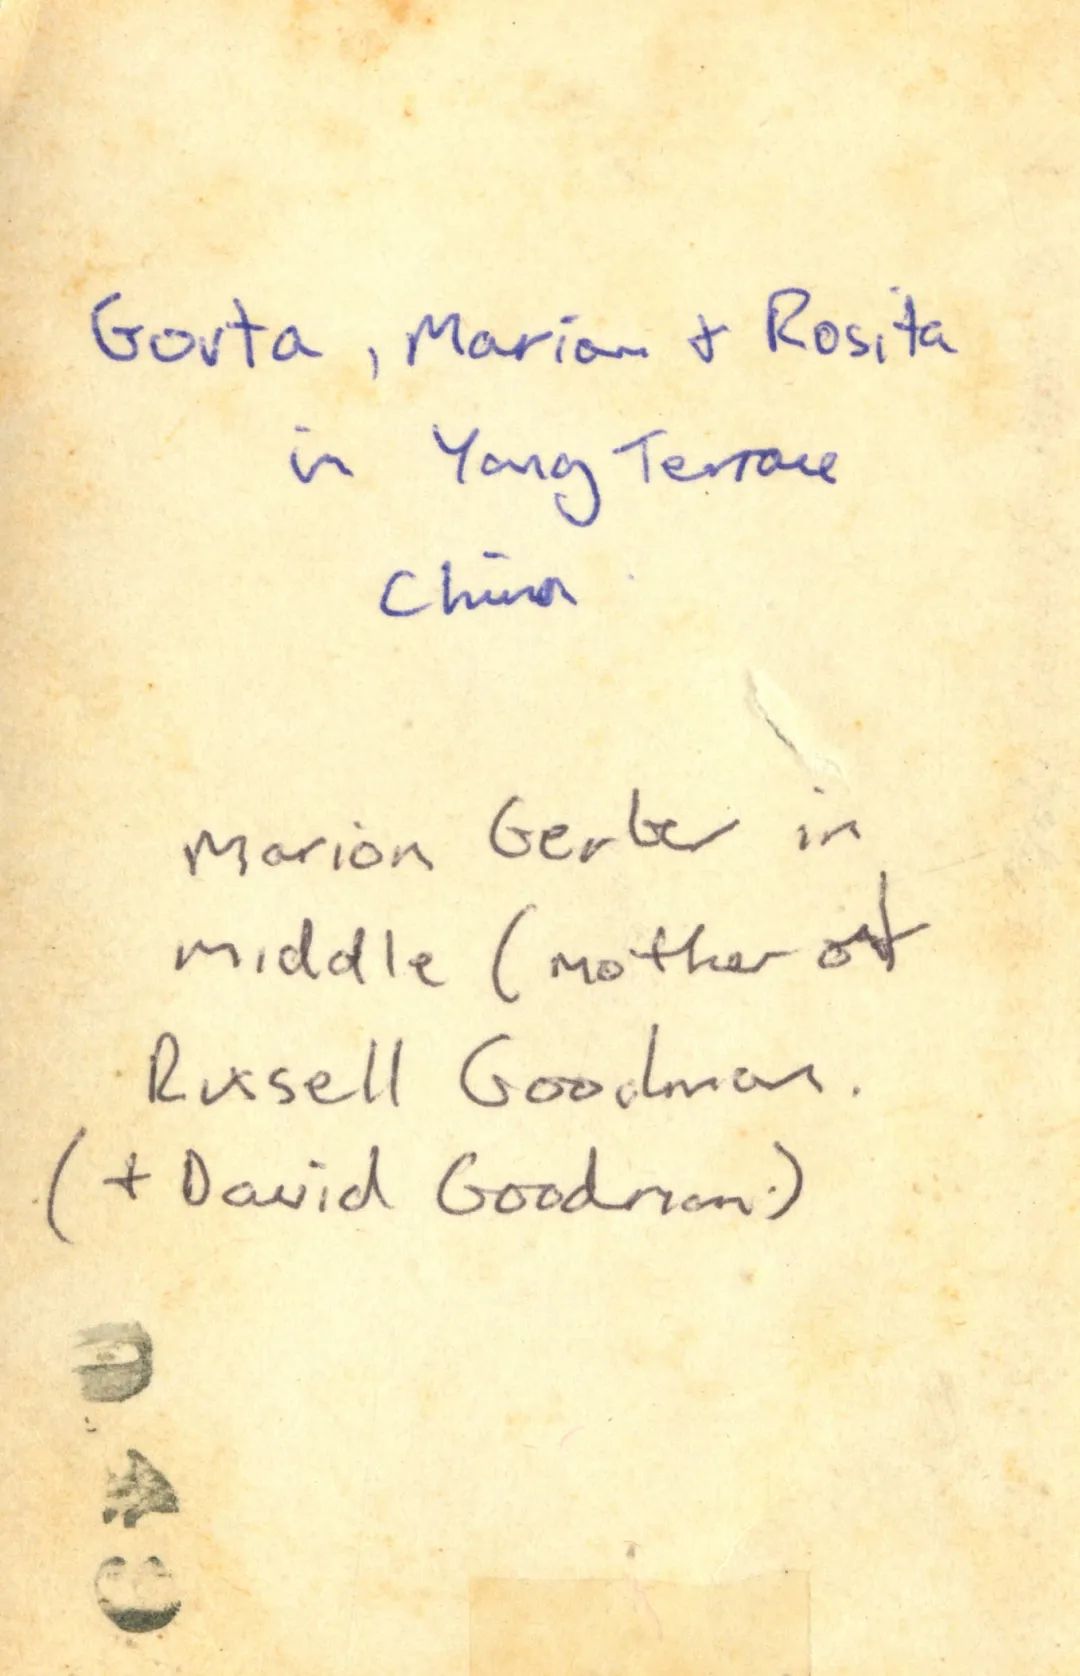 Gorta, Marian + Rosita
in Yang Terrace
China
Marion Gerber in
middle (mother of
Russell Goodman.
(+ David Goodman.)